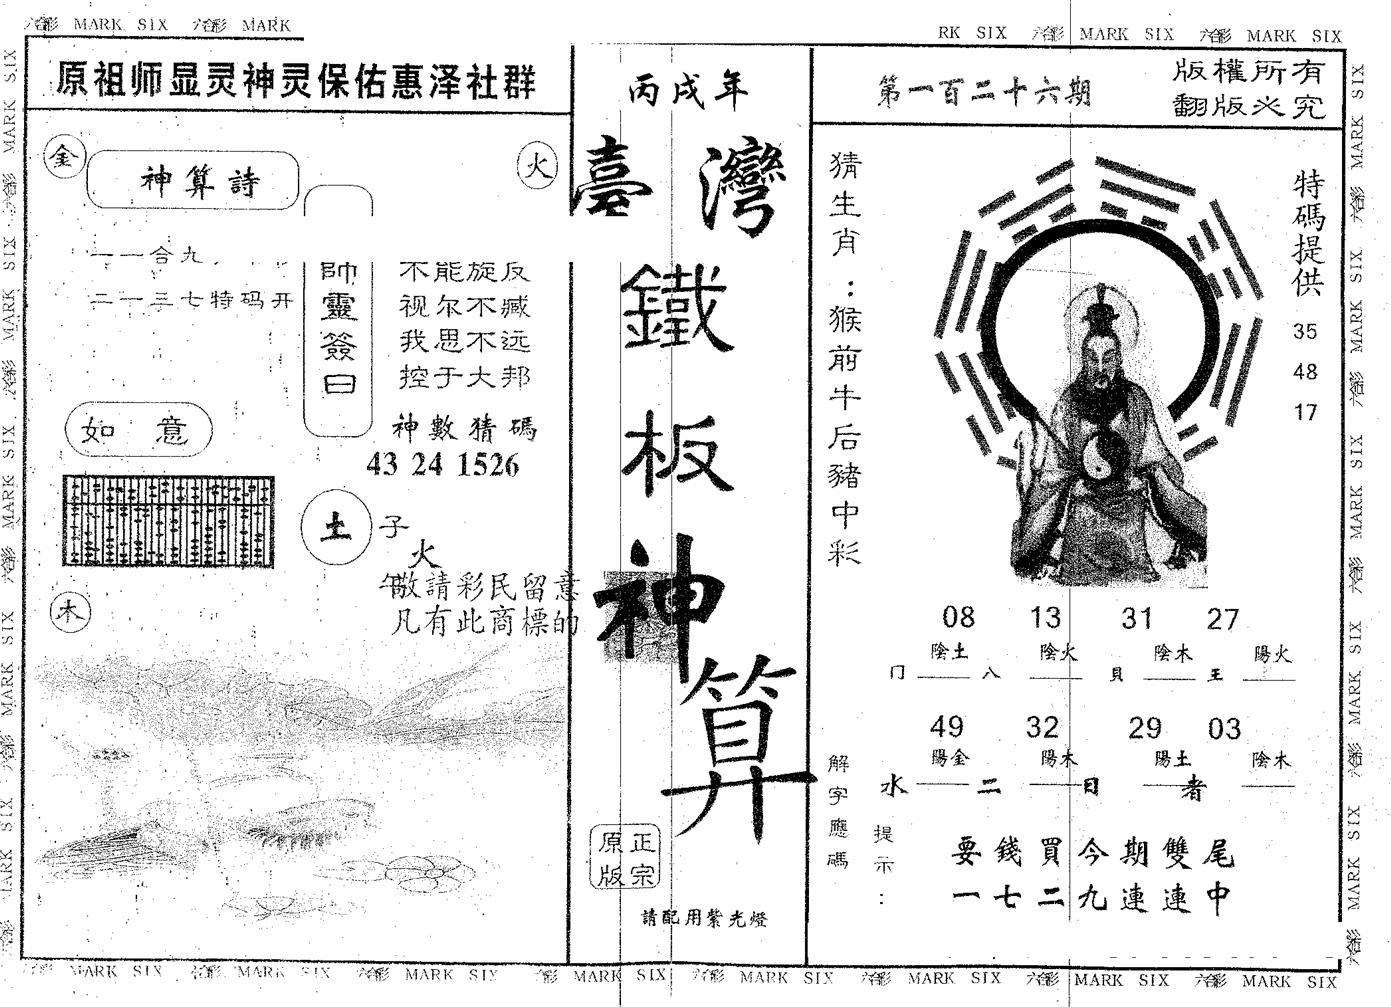 六合彩 MARK SIX 六合彩 MARK
RK SIX 六合彩 MARK SIX 六合彩 MARK SIX
原祖师显灵神灵保佑惠泽社群
金
神算詩
火
一一合九
二一三七特码开
帥靈簽曰
不能旋反
视尔不臧
我思不远
控于大邦
神數猜碼
43 24 1526
如 意
土
子
火
木
敬請彩民留意
凡有此商標的
丙戌年
臺灣
鐵
板
神
算
正宗
原版
請配用紫光燈
第一百二十六期
版權所有
翻版必究
猜生肖：猴前牛后豬中彩
特碼提供
35
48
17
08 13 31 27
陰土 陰火 陰木 陽火
门 八 貝 王
49 32 29 03
陽金 陽木 陽土 陰木
水 二 日 者
解字應碼
提示：
要錢買今期雙尾
一七二九連連中
MARK SIX 六合彩 MARK SIX 六合彩 MARK SIX 六合彩 MARK SIX 六合彩 MARK SIX 六合彩 MARK SIX 六合彩 MARK SIX 六合彩 MARK SIX